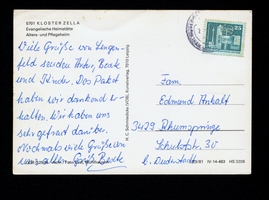 5701 KLOSTER ZELLA
Evangelische Heimstätte
Alters- und Pflegeheim
Viele Grüße von Lengen-
feld senden Anke, Beate
und Kinder. Das Paket
haben wir dankend er-
halten. Wir haben uns
sehr gefreut darüber.
Nochmals viele Grüße von
uns allen Beate
Fam.
Edmund Anhalt
3429 Rhumspringe
b. Duderstadt
25
DDR
IV-14-483